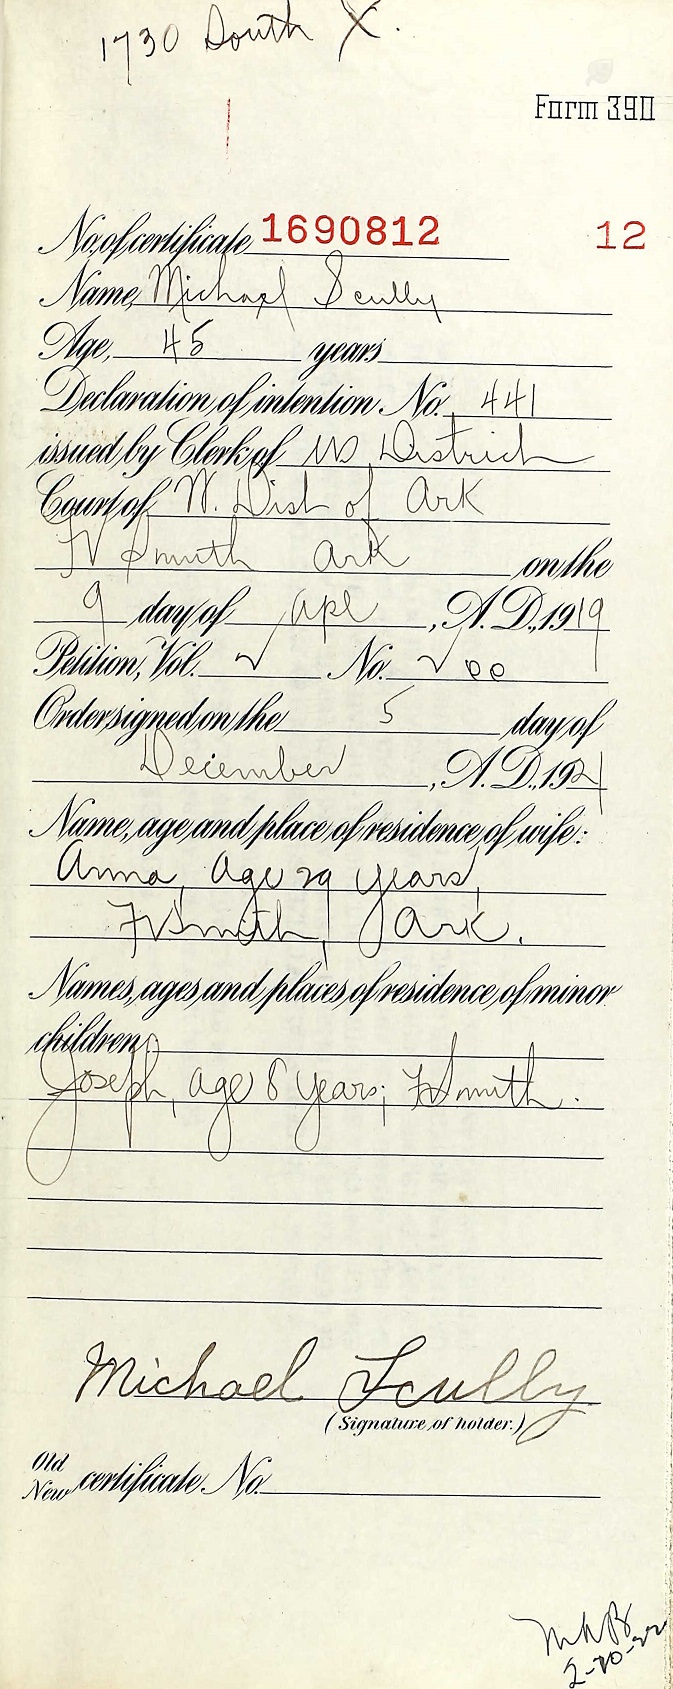 1730 South X.
Form 390
No. of certificate 1690812 12
Name Michael Scully
Age, 45 years
Declaration of intention No. 441
issued by Clerk of US District
Court of W. Dist of Ark
Ft Smith Ark on the
9 day of Apl, A.D., 1919
Petition, Vol. 2 No. 200
Order signed on the 5 day of
December, A.D., 1921
Name, age and place of residence of wife:
Anna, Age 29 years,
Ft Smith, Ark.
Names, ages and places of residence of minor
children
Joseph, age 8 years; Ft Smith.
Michael Scully
(Signature of holder.)
Old
New certificate No.
2-20-22